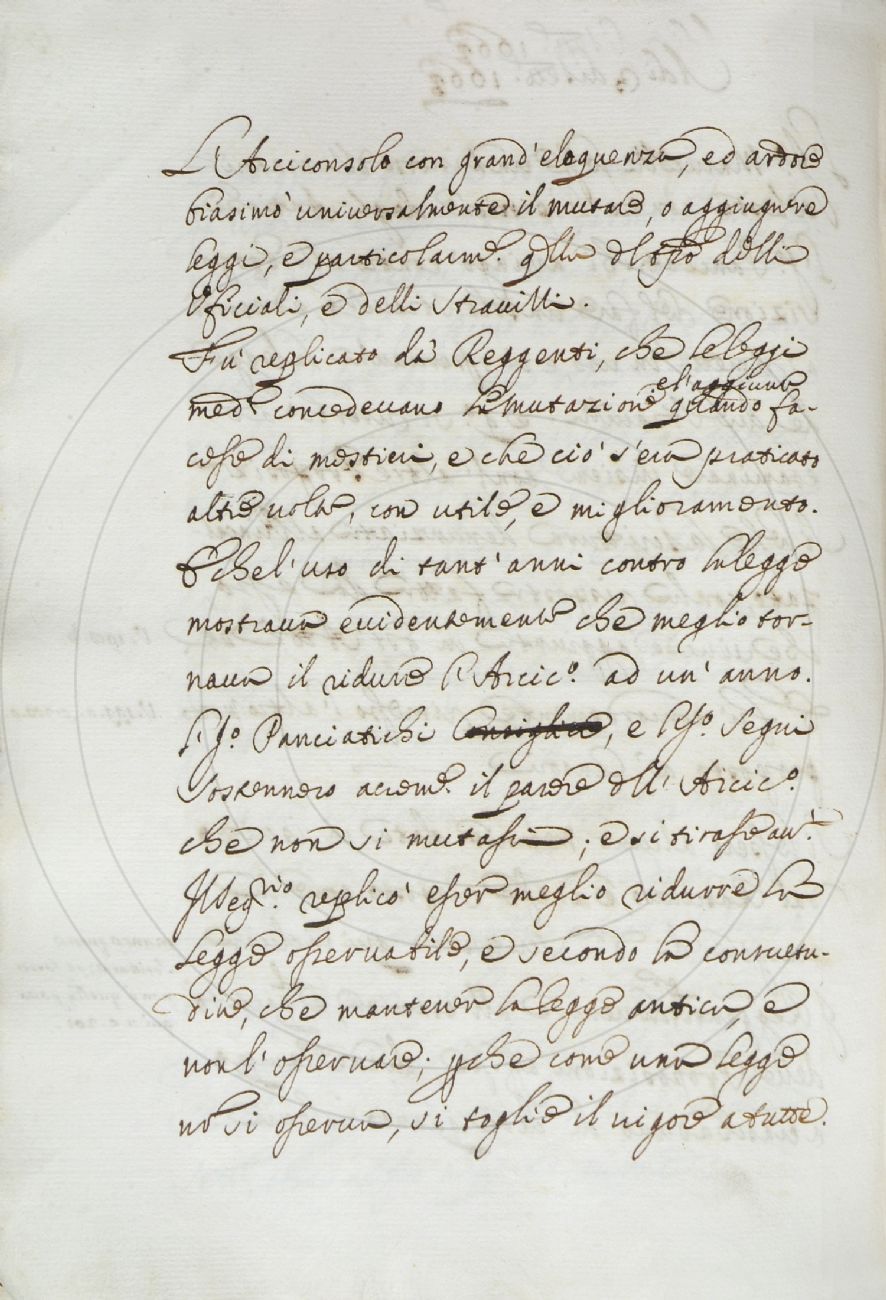 L'Arciconsolo con grand'eloquenza, ed ardore
biasimò universalmente il mutare, o aggiugnere
leggi, e particolarm.e q.lla del tpo delli
Ufiziali, e delli Stravizzi.
Fu' replicato da' Reggenti, che le leggi
med.e concedevano la mutazione, e l'aggiunta quando fa-
cesse di mestieri, e che ciò s'era praticato
altre volte, con utile, e miglioramento.
E che l'uso di tant'anni contro la legge
mostrava evidentemente che meglio tor-
nava il ridurre l'Arcic.o ad un'anno.
L'Jo. Panciatichi Consigliere, e l'Jo. Segni
sostennero acrem.e il parere dell'Arcic.o
che non si mutassi; e si tirasse av.ti
Il Seg.rio replicò esser meglio ridurre la
legge osservabile, e secondo la consuetu-
dine, che mantener la legge antica, e
non l'osservare; p.che come una legge
no si osserva, si toglie il vigore a tutte.